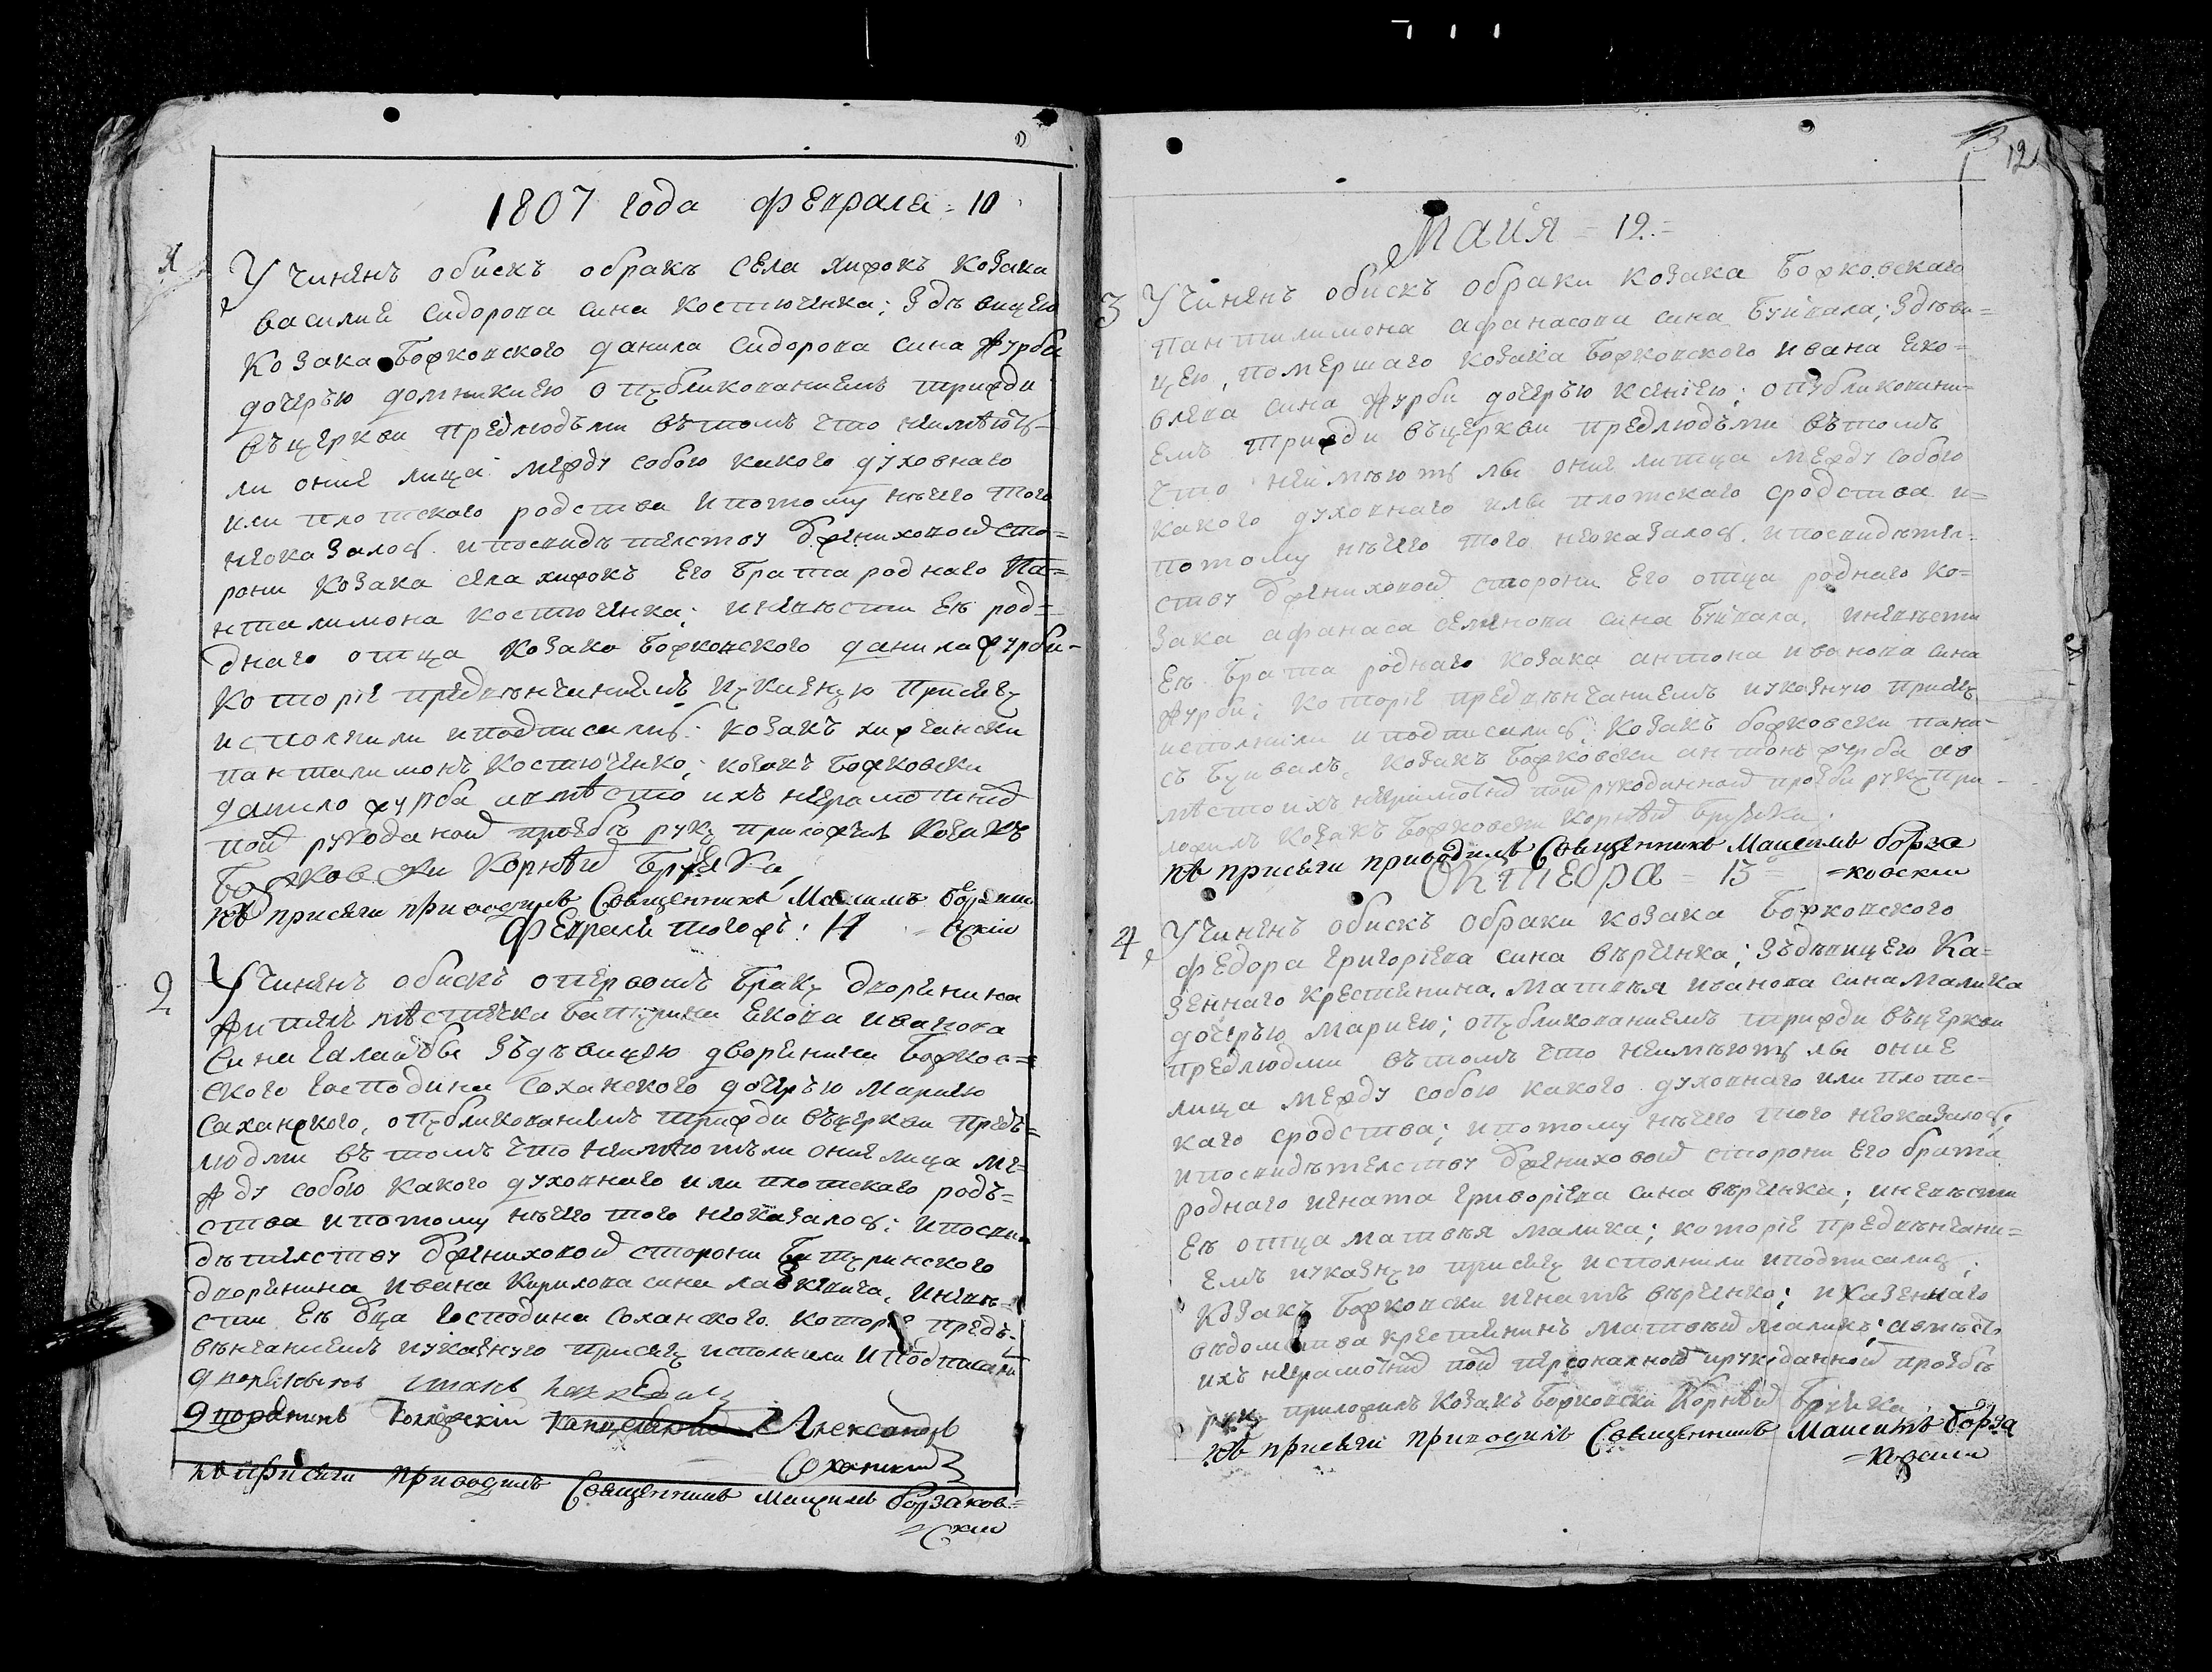 1807 года февраля = 10
1
Учиненъ обискъ обракъ села хижокъ козака
василия сидорова сина костюченка; здѣвицею
козака божковского данила сидорова сина журби
дочерью домникиею опубликованиемъ трижди
въцеркви предлюдьми втомъ что неимѣютъ
ли оние лица между собою какого духовнаго
или плотскаго родства ипотому нѣчего того
неоказалос. ипосвидѣтелству бжениховой сто=
рони козака села хижокъ его брата роднаго Па=
нталимона костюченка; иневѣсти еѣ род=
днаго отца козака божковского данила журби-
которіе предвѣнчаниемъ указную присягу
исполнили иподписалис: козакъ хижчански
панталимонъ костюченко; козакъ божковски
данило журба авмѣсто ихъ неграмотний
пой рукоданой прозбѣ руку приложилъ козакъ
божковски корнѣй бруяка
къ присяги приводилъ Священникъ Максимъ борзако
вскій
Февраля тогожъ: 11
2
Учиненъ обискъ опервомъ браку дворенина
жителя мѣстечка батурина Екова иванова
сина галайбы зъдѣвицею дворенина божков=
ского господина саханского дочерью мариею
саханского, опубликованиемъ трижди въцеркви предъ=
людми въ томъ что неимѣютъли оние лица ме=
жду собою какого духовнаго или плотскаго родъ=
ства ипотому нѣчего того неоказалос: ипосви
дѣтелству бжениховой сторони батуринского
дворенина ивана кирилова сина, иневѣ=
сти еѣ оца господина соханского. которіе предъ-
вѣнчаниемъ указную присягу исполнили иподписали
дворянинъ иванъ
Дворянинъ Колежскій Александръ
Соханский
къ присяги приводилъ Священникъ Максимъ борзаков=
=скій
12
Маія = 12 =
3
Учиненъ обискъ обраки козака божковскаго
пантилимона афанасова сина буйвала; здѣви=
цею, помершаго козака божковского ивана еко=
влева сина журби дочерью ксениею; опубликовани-
емъ трижди въцеркви предлюдьми втомъ
что неимѣютъ лы оние литца между собою
какого духовнаго илы плотскаго сродства и=
потому нѣчего того неоказалос. ипосвидѣтел=
ству бжениховой сторони его отца роднаго ко=
зака афанаса семенова сина буйвала, иневѣсти
еѣ брата роднаго козака антона иванова сина
журби; которіе предвѣнчаниемъ указную присяг
исполнили иподписалис: козакъ божковски пана-
съ буйвалъ, козакъ божковски антонъ журба ав
мѣсто ихъ неграмотний пой рукоданной прозби руку при-
ложилъ козакъ божковски корнѣй бруяка.
къ присяги приводилъ Священникъ Максимъ борза
=ковский
Октебра = 13 =
4
Учиненъ обискъ обраки козака божковского
федора григоріева сина вѣрченка; зъдѣвицею ка=
зеннаго крестенина, матвѣя иванова сина малика
дочерью мариею; опубликованиемъ трижди въцеркви
предлюдми вътомъ что неимѣютъ лы оние
лица между собою какого духовнаго или плотс=
каго сродства; ипотому нѣчего того неоказалос;
ипосвидѣтелству бжениховой сторони его брата
роднаго игната григоріева сина вѣрченка; иневѣсти
еѣ отца матвѣя малика; которіе предвѣнчани=
емъ указную присягу исполнили иподписалис;
козакъ божковски игнатъ вѣрченко; иказеннаго
вѣдомства крестенинъ матвѣй маликъ; авмѣсто
ихъ неграмотний пой персоналной ирукоданной прозбѣ
руку приложилъ козакъ божковски корнѣй бруяка
къ присяги приводилъ Священникъ Максимъ борза
=ковский